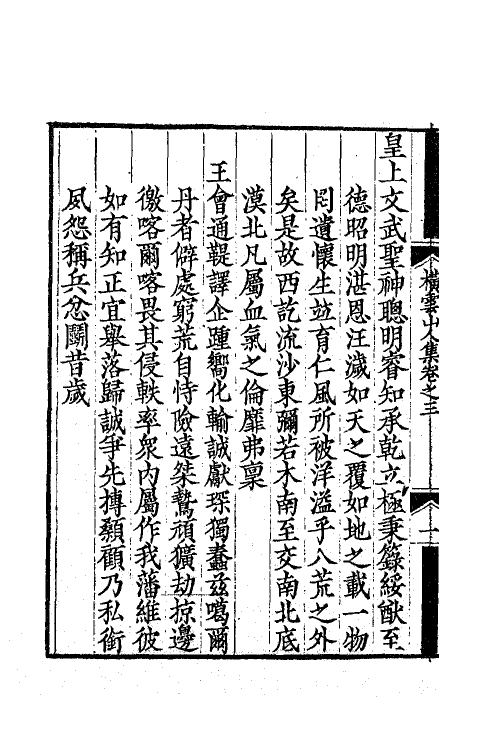 皇上文武聖神聰明睿知承乾立極秉籙綏猷至
德昭明湛恩汪濊如天之覆如地之載一物
罔遺懷生竝育仁風所被洋溢乎八荒之外
矣是故西訖流沙東彌若木南至交南北底
漠北凡屬血氣之倫靡弗稟
王會通鞮譯企踵嚮化輸誠獻琛獨蠢玆噶爾
丹者僻處窮荒自恃險遠桀驁頑獷劫掠邊
徼喀爾喀畏其侵軼率衆內屬作我藩維彼
如有知正宜舉落歸誠爭先摶顙顧乃私銜
夙怨稱兵忿鬭昔歲
橫雲山人集卷之三
一